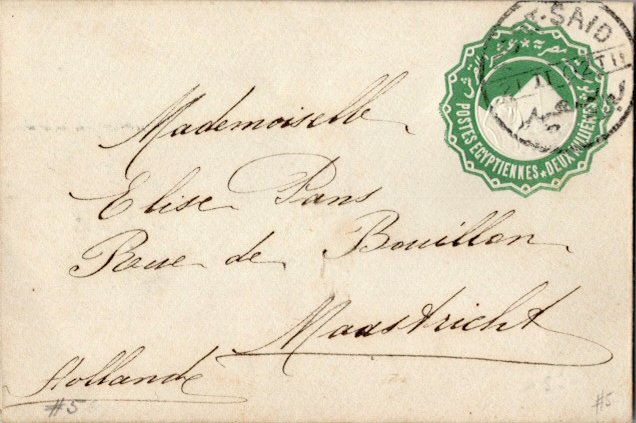 Mademoiselle
Elise Pans
Rue de Bouillon
Maastricht
Hollande
#5
#5
POSTES EGYPTIENNES ★ DEUX MILLIEMES
T-SAID
II 02 TII